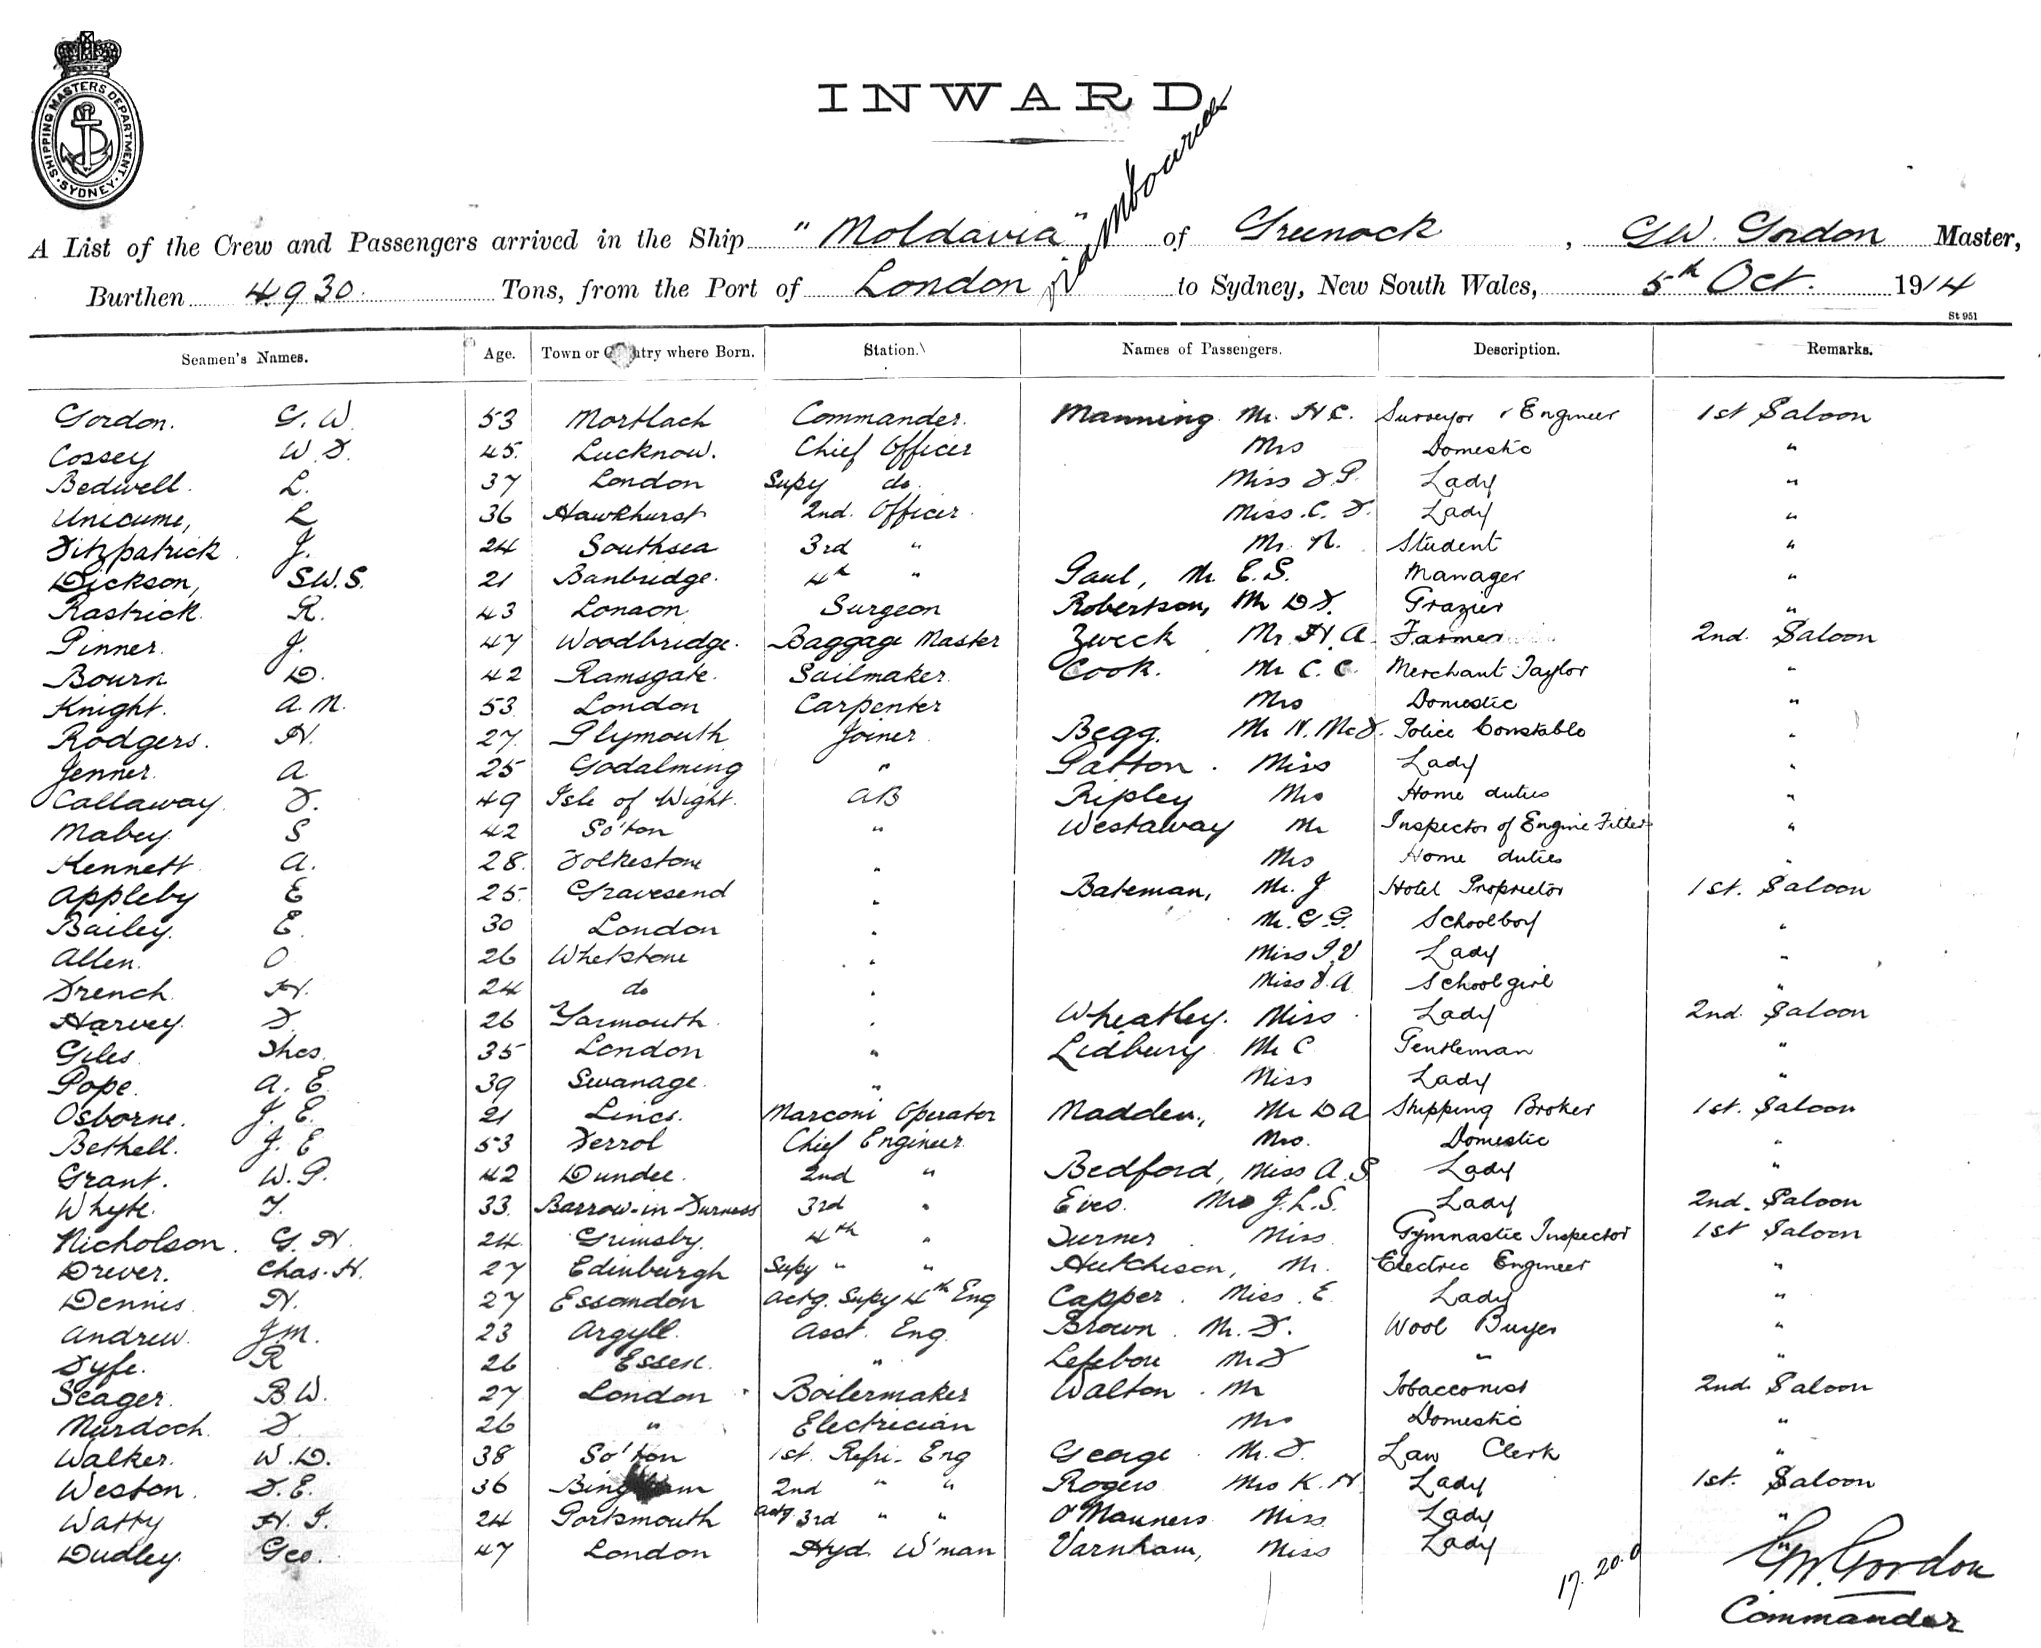 SHIPPING MASTERS DEPARTMENT · SYDNEY ·
INWARD.
A List of the Crew and Passengers arrived in the Ship "Moldavia" of Greenock, G W. Gordon Master,
Burthen 4930 Tons, from the Port of London via Melbourne to Sydney, New South Wales, 5th Oct. 1914
St 951
Seamen's Names. Age. Town or Country where Born. Station. Names of Passengers. Description. Remarks.
Gordon. G. W. 53 Mortlach Commander. Manning. Mr. H C. Surveyor & Engineer 1st Saloon
Cossey W. F. 45. Lucknow. Chief Officer Mrs Domestic "
Bedwell. L. 37 London Supy do. Miss F. P. Lady "
Unicume, L 36 Hawkhurst 2nd. Officer. Miss. C. F. Lady "
Fitzpatrick. J. 24 Southsea 3rd " Mr. N. Student "
Dickson, S.W.S. 21 Banbridge. 4th " Paul, Mr. E. S. Manager "
Rastrick. R. 43 London Surgeon Robertson, Mr D F. Grazier "
Pinner. J. 47 Woodbridge. Baggage Master Zweck Mr. H. A. Farmer 2nd. Saloon
Bourn D. 42 Ramsgate. Sailmaker Cook. Mr C. C. Merchant Taylor "
Knight. A. M. 53 London Carpenter Mrs Domestic "
Rodgers. H. 27. Plymouth Joiner Begg. Mr N. McF. Police Constable "
Jenner. A 25 Godalming " Patton. Miss Lady "
Callaway. F. 49 Isle of Wight. AB Ripley Mrs Home duties "
Mabey S 42 So'ton " Westaway Mr Inspector of Engine Fitter "
Kennett A. 28. Folkestone " Mrs Home duties "
Appleby E 25. Gravesend " Bateman, Mr. J Hotel Proprietor 1st. Saloon
Bailey. E. 30 London " Mr. G. G. Schoolboy "
Allen. O 26 Whetstone " Miss I. V Lady "
French H. 24 do " Miss V. A. Schoolgirl "
Harvey. F. 26 Yarmouth. " Wheatley. Miss Lady 2nd. Saloon
Giles. Thos. 35 London " Lidbury Mr C Gentleman "
Pope. A. E. 39 Swanage. " Miss Lady "
Osborne. J. E. 21 Lincs. Marconi Operator Madden, Mr D A Shipping Broker 1st. Saloon
Bethell. J. E 53 Ferrol Chief Engineer Mrs. Domestic "
Grant. W. P. 42 Dundee. 2nd " Bedford, Miss A. S Lady "
Whyte. T. 33. Barrow-in-Furness 3rd " Eves. Mrs J. L. S. Lady 2nd. Saloon
Nicholson. G. H. 24. Grimsby. 4th " Turner Miss Gymnastic Inspector 1st Saloon
Drever. Chas. H. 27 Edinburgh Supy " " Hutchison, Mr. Electric Engineer "
Dennis. H. 27 Essendon Actg. Supy 4th Eng Capper. Miss. E. Lady "
Andrew. J.M. 23 Argyll. Asst. Eng. Brown. Mr. F. Wool Buyer "
Fyfe. R 26 Essex. " Lefebvre Mr F " "
Seager. B. W. 27 London Boilermaker Walton. Mr Tobacconist 2nd Saloon
Murdoch. F. 26 " Electrician Mrs Domestic "
Walker. W. D. 38 So'ton 1st. Refri. Eng George. Mr. F. Law Clerk "
Weston. F. E. 36 2nd " " Rogers Mrs K. H. Lady 1st. Saloon
Watty H. J. 24 Portsmouth Actg 3rd " " O'Manners Miss Lady "
Dudley. Geo. 47 London Hyd. W'man Varnham, Miss Lady
17. 20. 0
G.W. Gordon
Commander